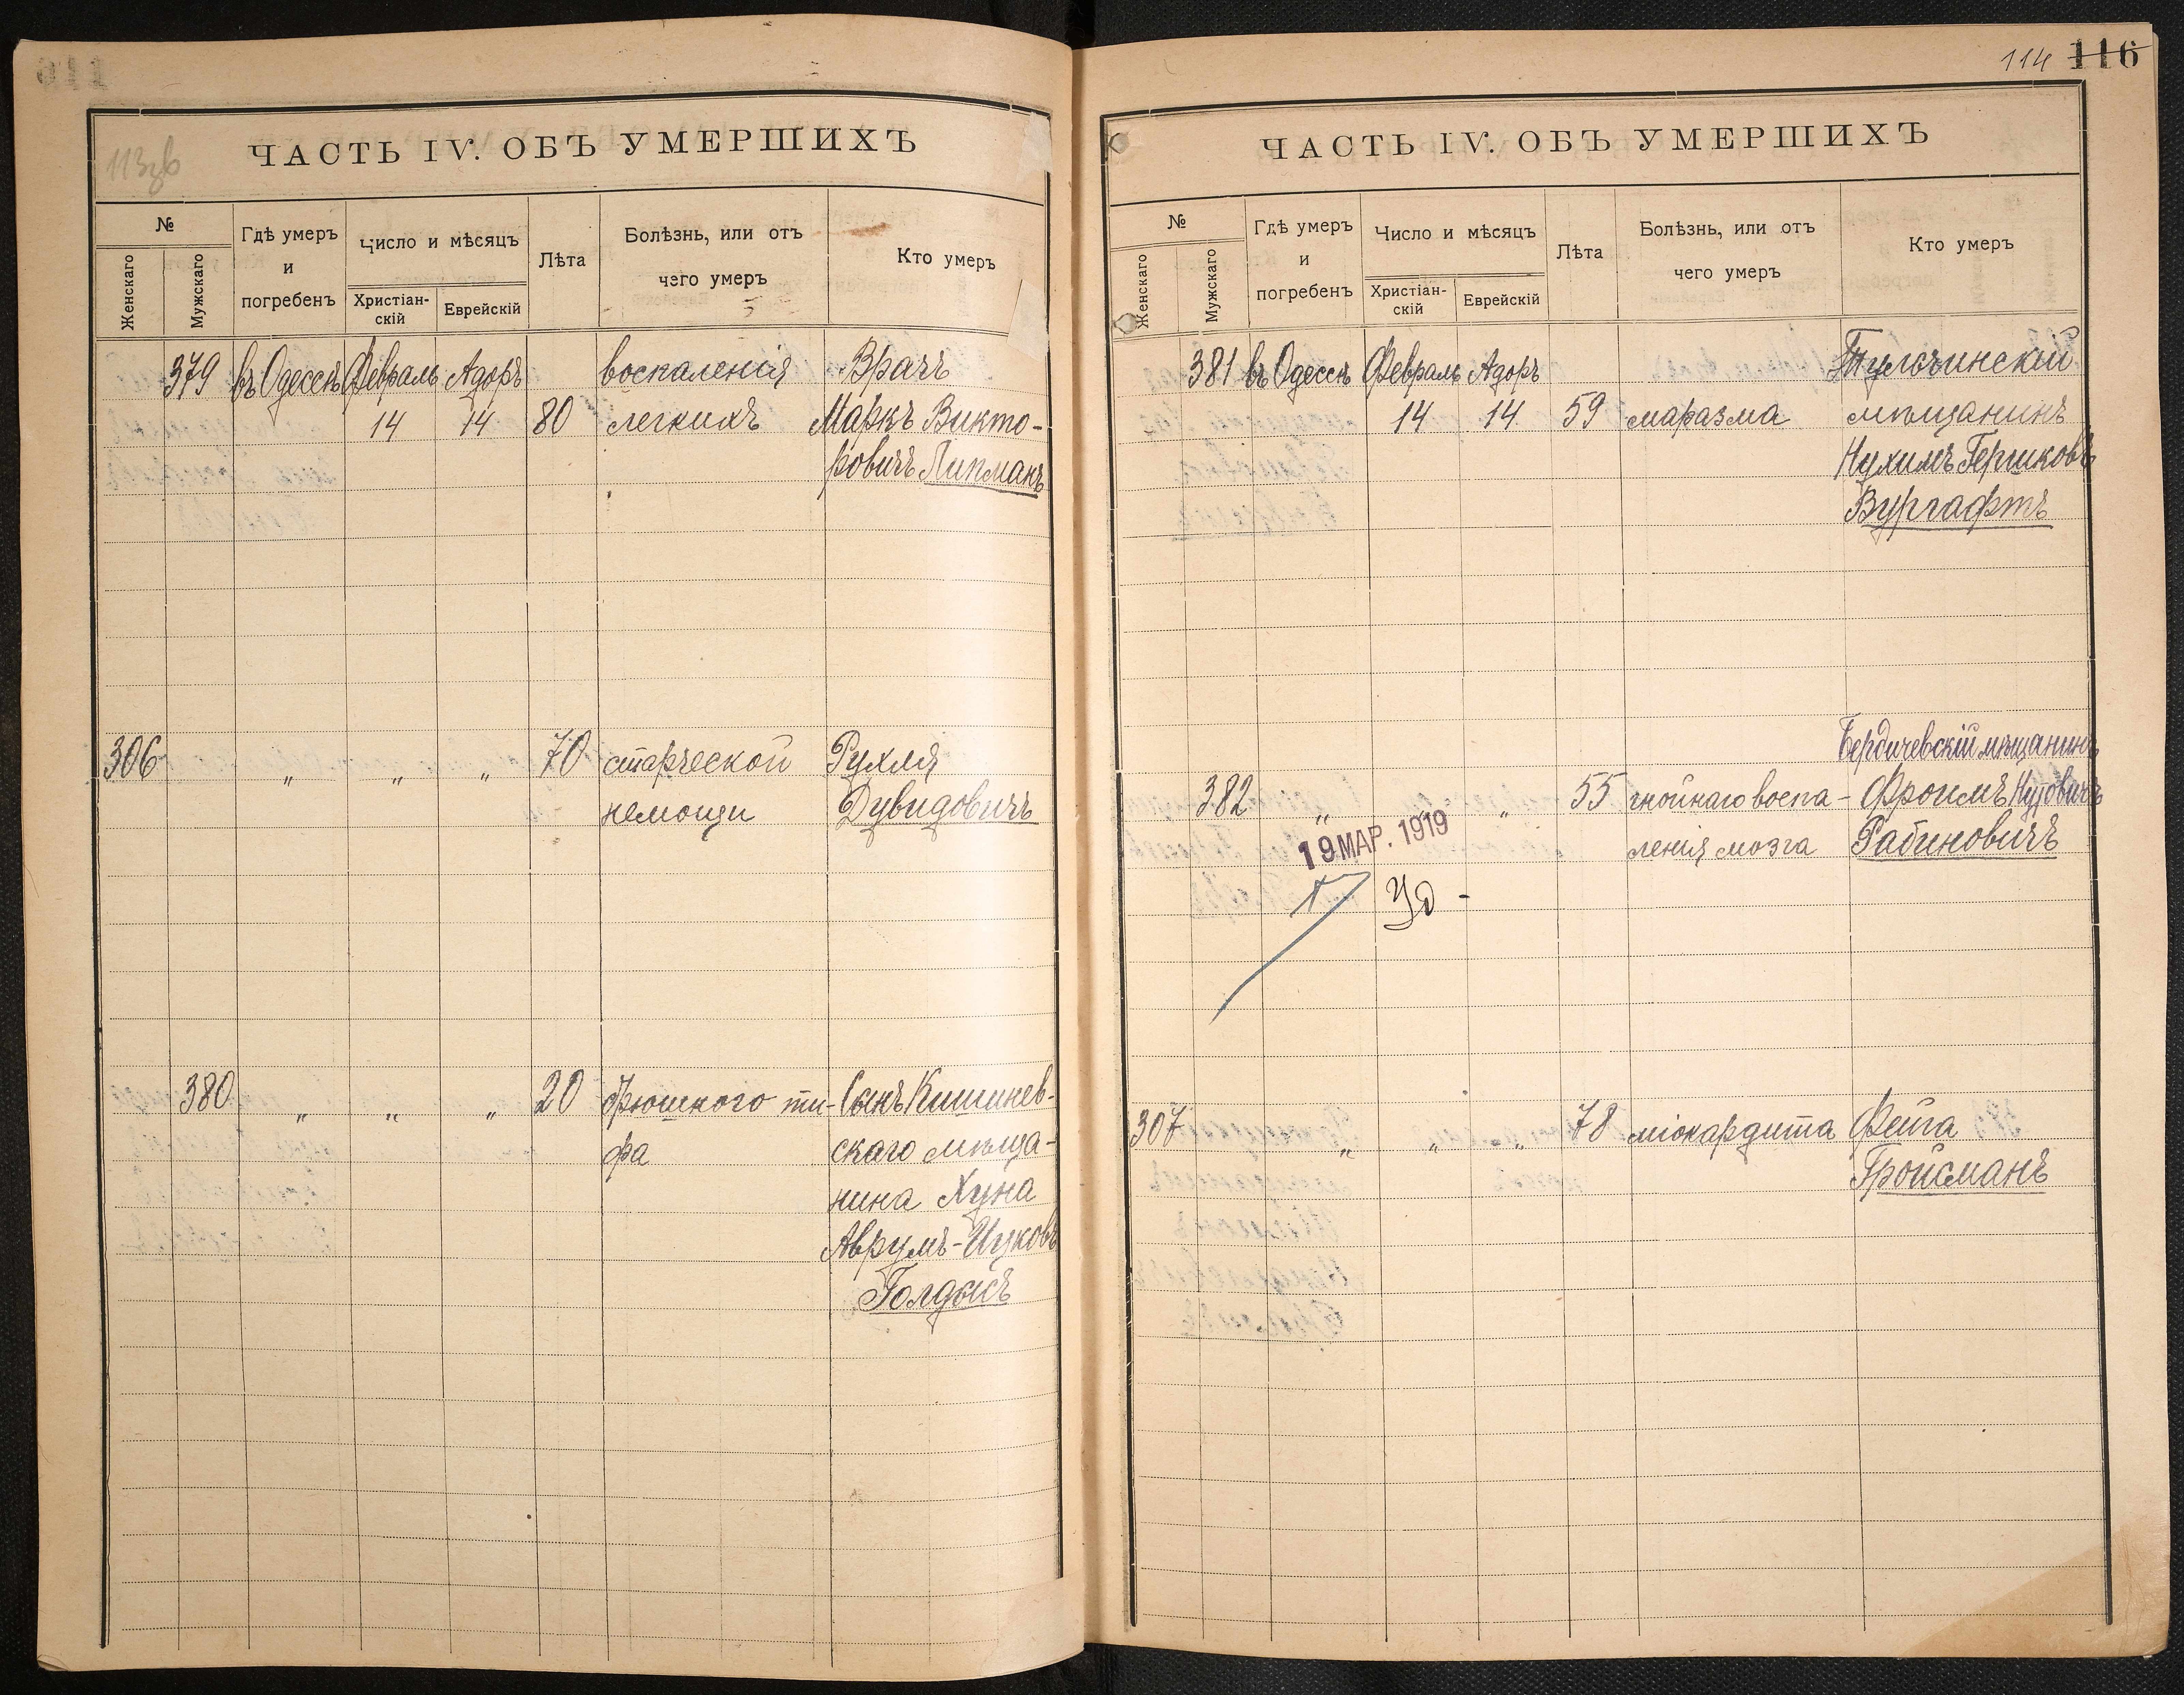 113зв
ЧАСТЬ IV. ОБЪ УМЕРШИХЪ
№
Женскаго
Мужскаго
Гдѣ умеръ
и
погребенъ
Число и мѣсяцъ
Христіан-
скій
Еврейскій
Лѣта
Болѣзнь, или отъ
чего умеръ
Кто умеръ
379 въ Одессѣ Февраль Адоръ воспаленія Врачъ
14 14 80 легкихъ Маркъ Викто-
ровичъ Липманъ
306 " " " 70 старческой Рухля
немощи Дувидовичъ
380 " " " 20 брюшного ти- Сынъ Кишинев-
фа скаго мѣща-
нина Хуна
Аврумъ-Ицковъ
Голдысъ
114 116
ЧАСТЬ IV. ОБЪ УМЕРШИХЪ
№
Женскаго
Мужскаго
Гдѣ умеръ
и
погребенъ
Число и мѣсяцъ
Христіан-
скій
Еврейскій
Лѣта
Болѣзнь, или отъ
чего умеръ
Кто умеръ
Тульчинскій
381 въ Одессѣ Февраль Адоръ
14 14 59 маразма мѣщанинъ
Нухимъ Гершковъ
Вургафтъ
Бердичевскій мѣщанинъ
382 " " 55 гнойнаго воспа- Фроимъ Нузовичъ
19 МАР. 1919
ленія мозга Рабиновичъ
Уд -
307 " " " 78 міокардита Фейга
Гройсманъ